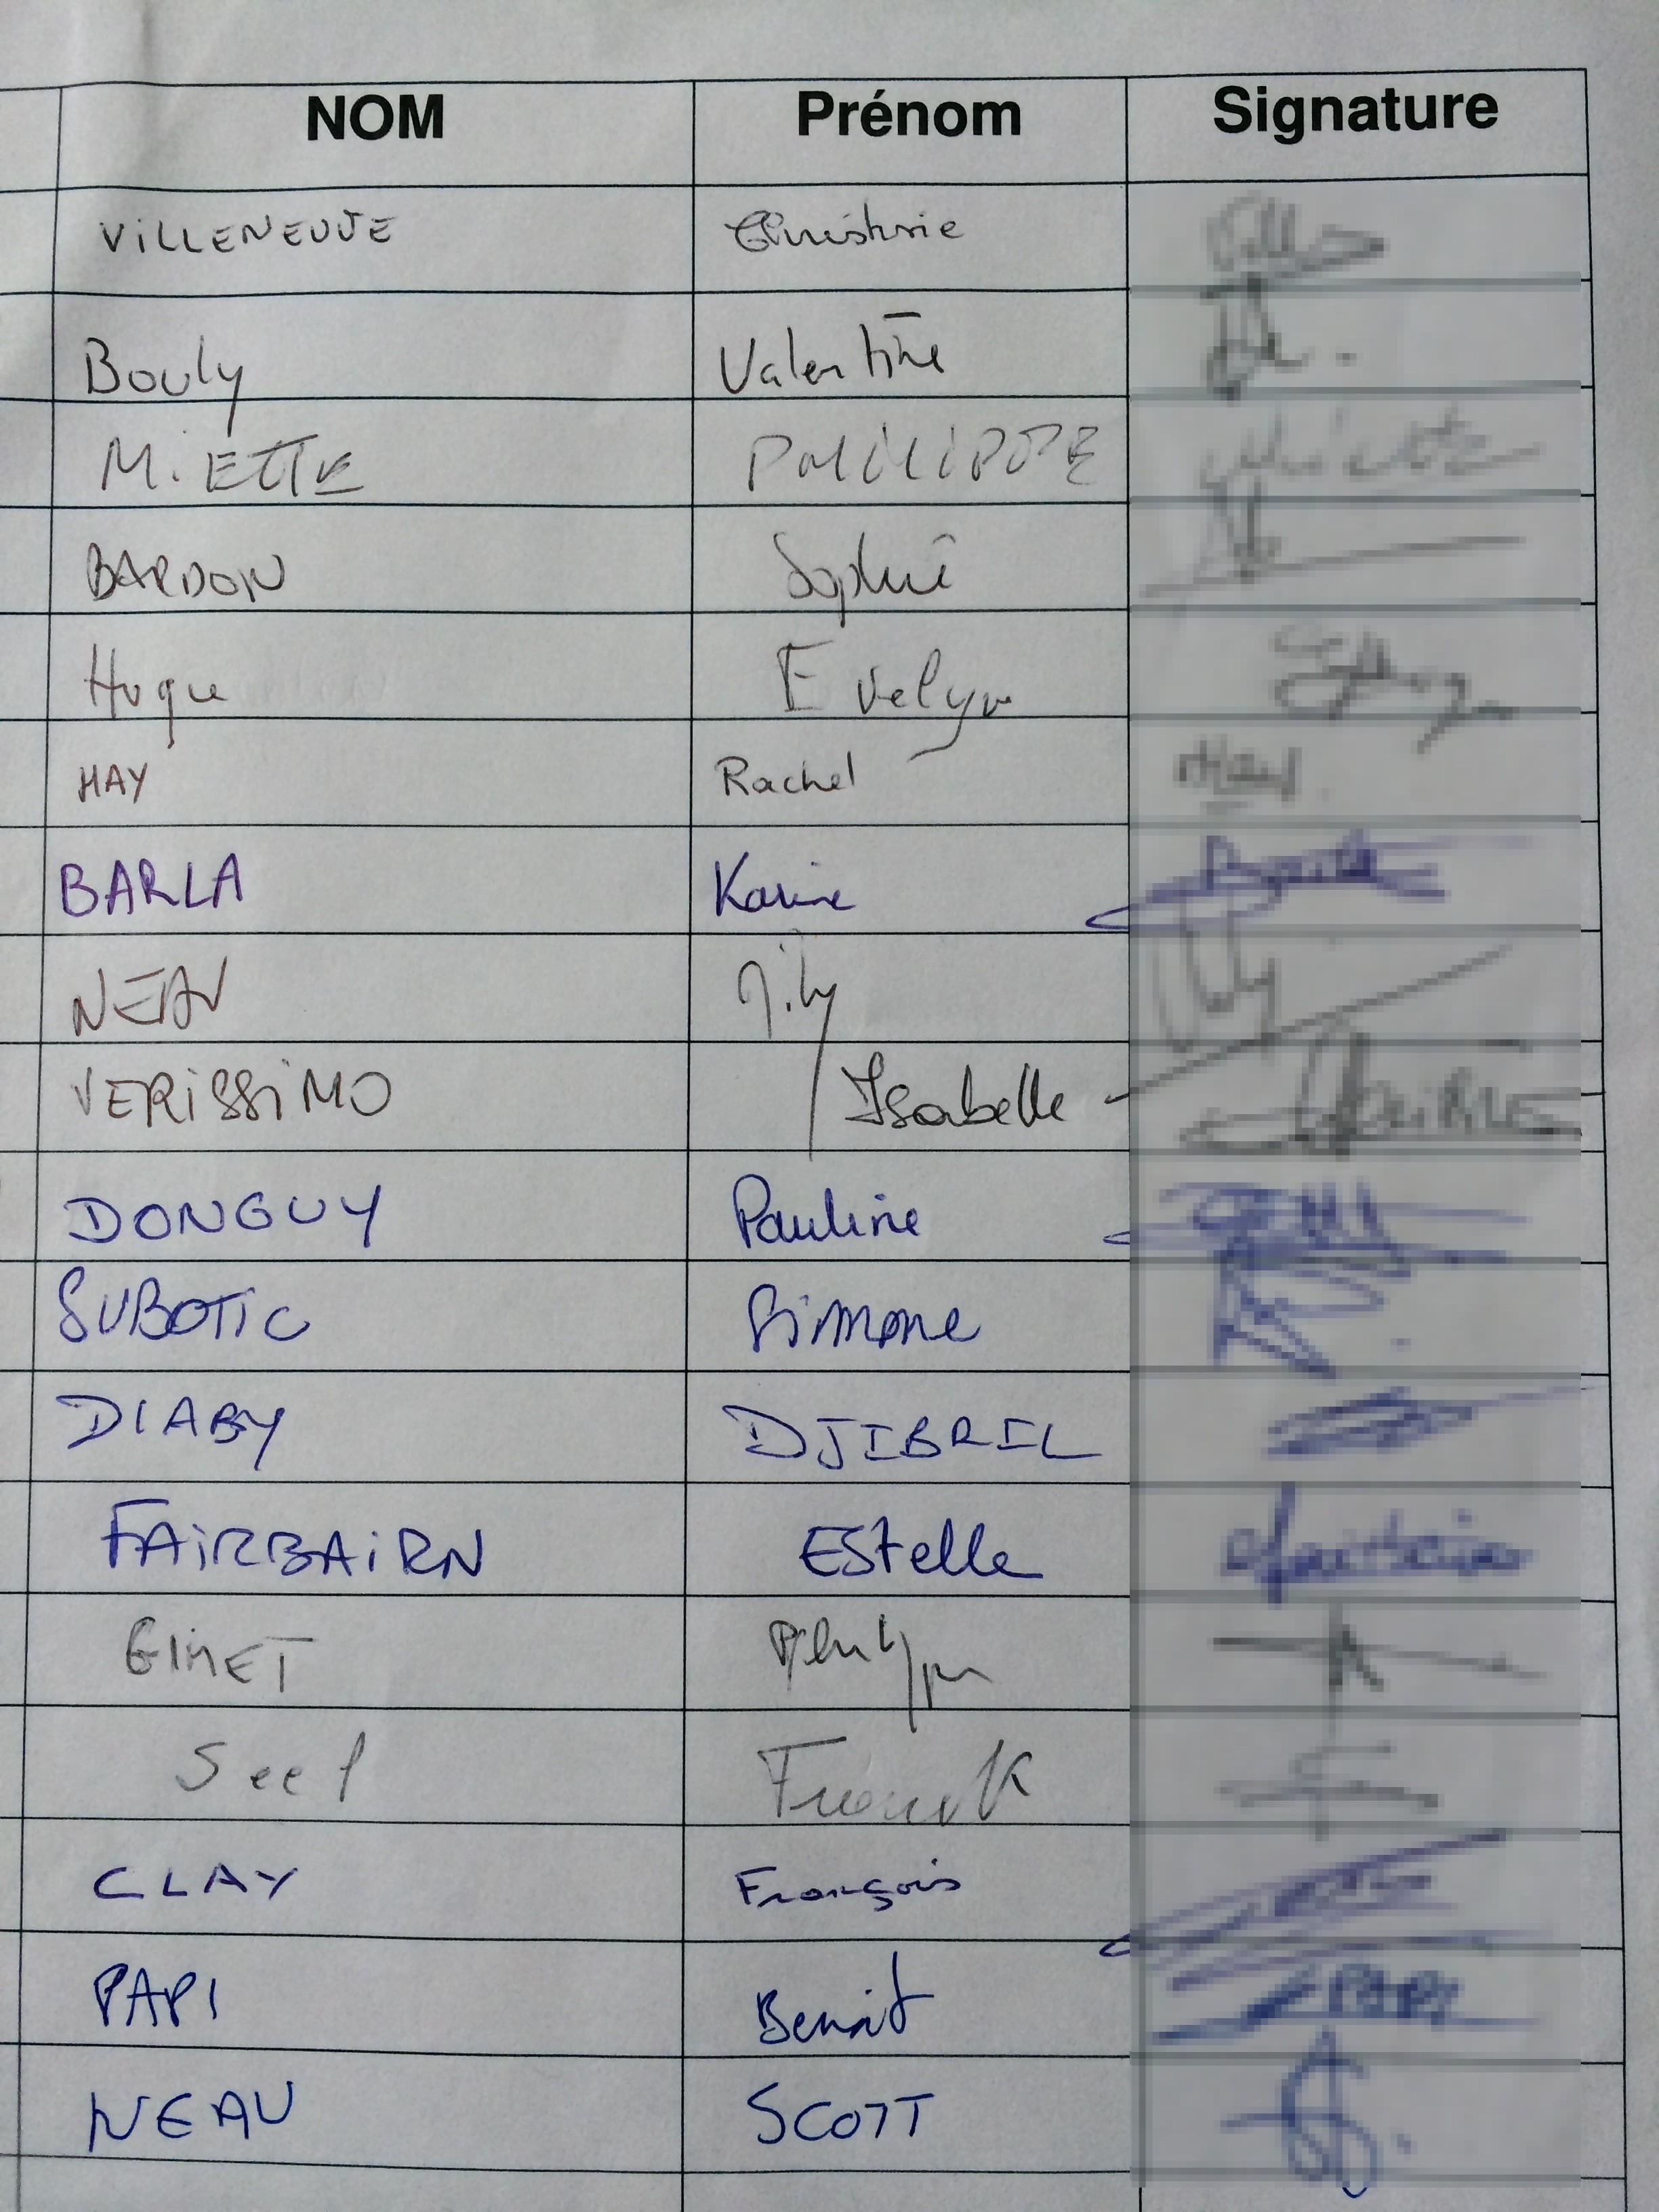 NOM Prénom Signature
VILLENEUVE Christine
Bouly Valentine
MIETTE PHILIPPE
BARDON Sophie
Huque Evelyn
HAY Rachel
BARLA Karine
NEAU
VERISSIMO Isabelle
DONGUY Pauline
SUBOTIC Simone
DIABY DJIBRIL
FAIRBAIRN EStelle
GINET Philippe
Seel Franck
CLAY François
PAPI Benoit
NEAU SCOTT